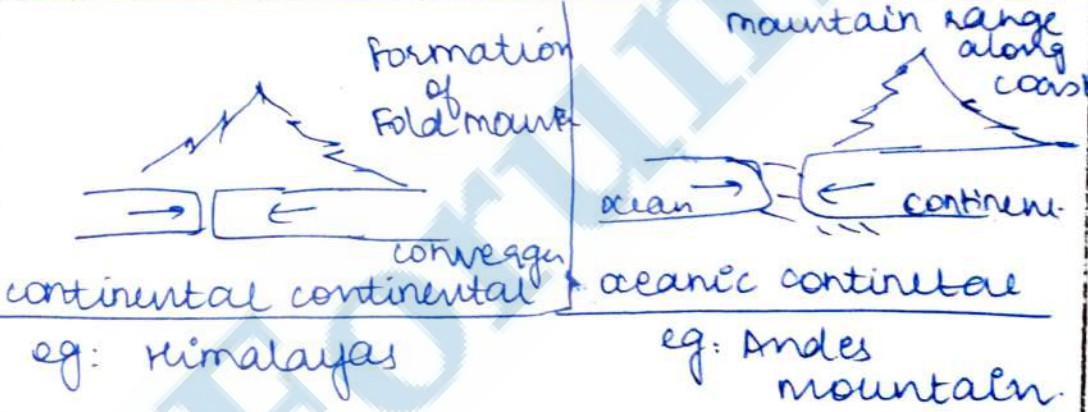 Formation
of
Fold mount
convergen
continental continental
eg: Himalayas
mountain range
along
coast
ocean
continent
oceanic continetal
eg: Andes
mountain.
Forum